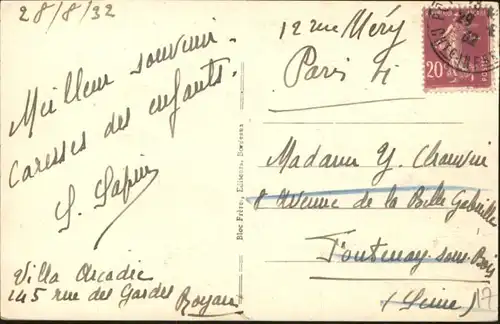 28/8/32
Meilleur souvenir.
Caresses des enfants.
S. Sapin
Villa Arcadie
145 rue des Gardes Royan
Bloc Frère, Editeurs, Bordeaux
12 rue Méry
Paris
20
Madame Y. Chauvin
8 Avenue de la Belle Gabrielle
Fontenay-sous-Bois
(Seine)
17